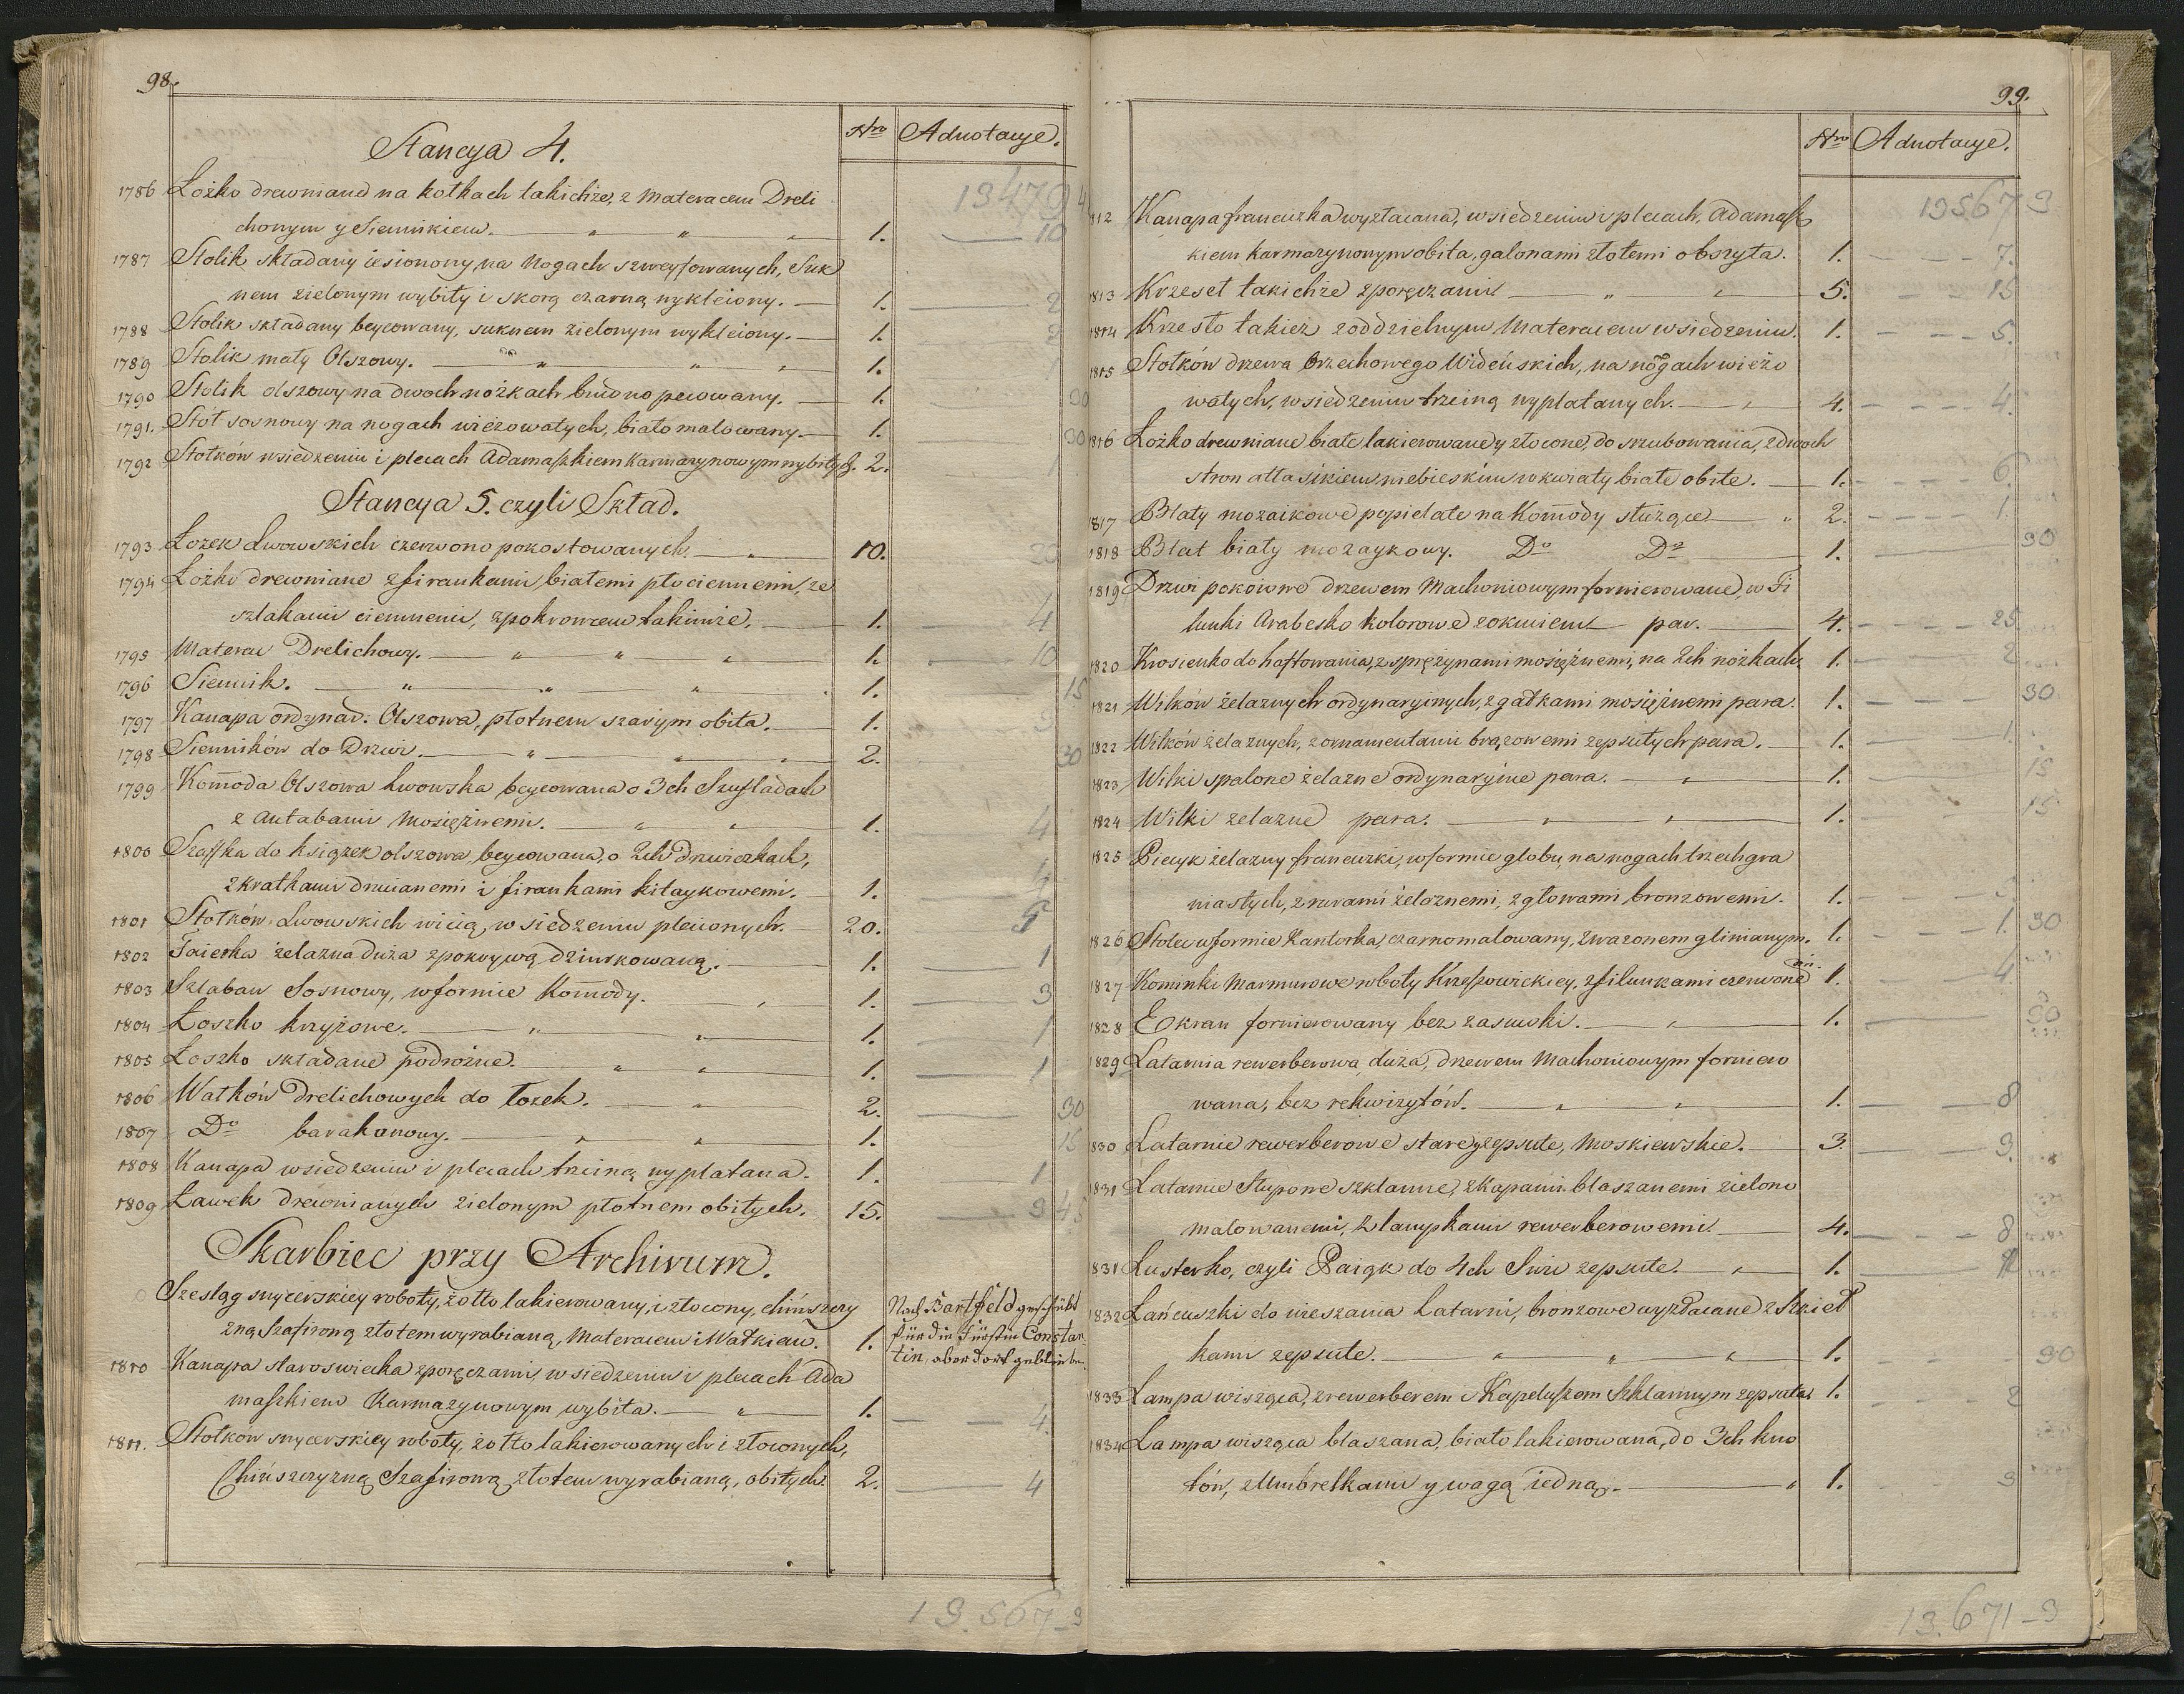 98.
Nro Adnotacye.
Stancya 4.
13479 4
1786 Łożko drewniane na kołkach takichże, z Materacem Dreli
chowym y Siennikiem. 1. 10
1787 Stolik składany iesionowy na Nogach szweyfowanych, Suk
nem zielonym wybity i skorą czarną wykleiony. 1. 2
1788 Stolik składany beycowany, suknem zielonym wykleiony. 1. 2
1789 Stolik mały Olszowy. 1. 1
1790 Stolik olszowy na dwoch nożkach brudno pecowany. 1. 30
1791. Stół sosnowy na nogach wieżowatych, biało malowany. 1. 30
1792 Stołków w siedzeniu i plecach Adamaszkiem Karmazynowym wybitych. 2.
Stancya 5. czyli Skład.
1793 Łożek Lwowskich czerwono pokostowanych. 10. 20
1794 Łożko drewniane z firankami białemi płociennemi, ze
szlakami ciemnemi, z pokrowcem takimże. 1. 4
1795 Materac Drelichowy. 1. 10
1796 Siennik. 1. 15
1797 Kanapa ordynar: Olszowa, płotnem szarym obita. 1. 3
1798 Sienników do Drzwi. 2. 30
1799 Kom̄oda Olszowa Lwowska beycowana o 3ch Szufladach
z Antabami Mosiężnemi. 1. 4
1800 Szafka do książek olszowa beycowana, o 2ch drzwiczkach,
z kratkami drucianemi i firankami kitaykowemi. 1. 4
1801 Stołków Lwowskich wicią w siedzeniu plecionych. 20. 5
1802 Faierka żelazna duża z pokrywą dziurkowaną. 1. 1
1803 Szlaban Sosnowy, w formie Kom̄ody. 1. 3
1804 Łoszko krzyżowe. 1. 1
1805 Łoszko składane podrożne. 1. 1
1806 Wałków Drelichowych do łożek. 2. 30
1807 Do barakanowy. 1. 15
1808 Kanapa w siedzeniu i plecach trzciną wyplatana. 1. 1
1809 Ławek drewnianych zielonym płotnem obitych. 15. 3 45
Skarbiec przy Archivum.
Szesląg snycerskiey roboty, żołto lakierowany, i złocony, chińszczy
zną Szafirową złotem wyrabianą, Materacem i Wałkiem. 1.
Nach Bartfeld geschickt
für die Fürstin Constan
tin, aber dort geblieben.
1810 Kanapa staroswiecka z poręczami, w siedzeniu i plecach Ada
maszkiem Karmazynowym wybita. 1. 4
1811. Stołków snycerskiey roboty, żołto lakierowanych i złoconych,
Chińszczyzną Szafirową złotem wyrabianą, obitych. 2. 4
13.567 3
99.
Nro Adnotacye.
13567 3
1812 Kanapa francuzka wyzłacana, w siedzeniu i plecach, Adamasz
kiem karmazynowym obita, galonami złotemi obszyta. 1. 7.
1813 Krzeseł takichże z poręczami 5. 15
1814 Krzesło takież z oddzielnym Materacem w siedzeniu. 1. 5.
1815 Stołków drzewa Orzechowego Wideńskich, na nogach wieżo
watych, w siedzeniu trzciną wyplatanych. 4. 4.
1816 Łożko drewniane białe lakierowane y złocone, do szrubowania, z dwoch
stron attłasikiem niebieskim w kwiaty białe obite. 1. 6.
1817 Blaty mozaikowe popielate na Kom̄ody służące 2. 1
1818 Blat biały mozaykowy. Do Do 1. 30
1819 Drzwi pokoiowe drzewem Machoniowym fornierowane, w Fi
lunki Arabesko kolorowe z okuciem par. 4. 25
1820 Krosienko do haftowania, z sprężynami mosiężnemi, na 2ch nożkach. 1. 2
1821 Wilków żelaznych ordynaryinych, z gałkami mosiężnemi para. 1. 30
1822 Wilków żelaznych, z ornamentami brązowemi zepsutych para. 1. 1.
1823 Wilki spalone żelazne ordynaryine para. 1. 15
1824 Wilki żelazne para. 1. 15
1825 Piecyk żelazny francuzki, w formie globu, na nogach trzech gra
niastych, z rurami żelaznemi, z głowami bronzowemi. 1.
1826 Stolec w formie Kantorka, czarno malowany, z wazonem glinianym. 1. 1. 30
1827 Kominki Marmurowe roboty Krzeszowickiey, z filunkami czerwone mi. 1. 4
1828 Ekran fornierowany bez zasuwki. 1. 30
1829 Latarnia rewerberowa duża, drzewem Mahoniowym forniero
wana, bez rekwizytów. 1. 8
1830 Latarnie rewerberowe stare y zepsute, Moskiewskie. 3. 3.
1831 Latarnie Słupowe szklanne, z kapami blaszanemi zielono
malowanemi, z lampkami rewerberowemi. 4. 8
1831 Lusterko, czyli Paiąk do 4ch Swic zepsute. 1.
1832 Łańcuszki do wieszania Latarni, bronzowe wyzłacane z Szkieł
kami zepsute. 1. 30
1833 Lampa wisząca, z rewerberem i Kapeluszem Szklannym zepsuta. 1. 2
1834 Lampa wisząca blaszana, biało lakierowana, do 3ch kno
tów, z Umbrelkami y wagą iedną. 1. 3
13.671_3